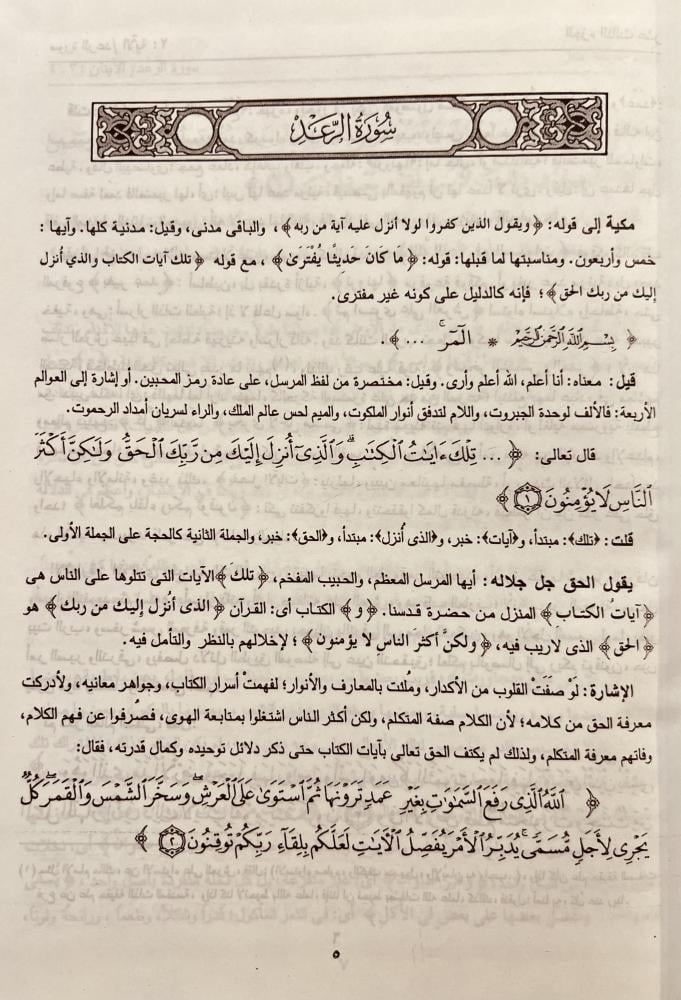 سُورَةُ الرَّعْدِ
مكية إلى قوله: ﴿ويقول الذين كفروا لولا أنزل عليه آية من ربه﴾، والباقى مدنى، وقيل: مدنية كلها. وآيها:
خمس وأربعون. ومناسبتها لما قبلها: قوله: ﴿مَا كَانَ حَدِيثًا يُفْتَرَىٰ﴾، مع قوله ﴿تلك آيات الكتاب والذي أُنزل
إليك من ربك الحق﴾؛ فإنه كالدليل على كونه غير مفترى.
﴿بِسْمِ اللَّهِ الرَّحْمَٰنِ الرَّحِيمِ * الٓمٓرۚ ...﴾.
قيل: معناه: أنا أعلم، الله أعلم وأرى. وقيل: مختصرة من لفظ المرسل، على عادة رمز المحبين. أو إشارة إلى العوالم
الأربعة: فالألف لوحدة الجبروت، واللام لتدفق أنوار الملكوت، والميم لحس عالم الملك، والراء لسريان أمداد الرحموت.
قال تعالى: ﴿... تِلْكَ ءَايَٰتُ ٱلْكِتَٰبِۗ وَٱلَّذِىٓ أُنزِلَ إِلَيْكَ مِن رَّبِّكَ ٱلْحَقُّ وَلَٰكِنَّ أَكْثَرَ
ٱلنَّاسِ لَا يُؤْمِنُونَ ١﴾
قلت: ﴿تلك﴾: مبتدأ، و﴿آيات﴾: خبر، و﴿الذى أُنزل﴾: مبتدأ، و﴿الحق﴾: خبر، والجملة الثانية كالحجة على الجملة الأولى.
يقول الحق جل جلاله: أيها المرسل المعظم، والحبيب المفخم، ﴿تلكَ﴾ الآيات التى تتلوها على الناس هى
﴿آياتُ الكتاب﴾ المنزل من حضرة قدسنا. ﴿و﴾ الكتاب أى: القرآن ﴿الذى أُنزل إليك من ربك﴾ هو
﴿الحق﴾ الذى لاريب فيه، ﴿ولكنَّ أكثر الناسِ لا يؤمنون﴾؛ لإخلالهم بالنظر والتأمل فيه.
الإشارة: لَوْ صفَتْ القلوب من الأكدار، ومُلئت بالمعارف والأنوار؛ لفهمتْ أسرار الكتاب، وجواهر معانيه، ولأدركت
معرفة الحق من كلامه؛ لأن الكلام صفة المتكلم، ولكن أكثر الناس اشتغلوا بمتابعة الهوى، فصُرفوا عن فهم الكلام،
وفاتهم معرفة المتكلم، ولذلك لم يكتف الحق تعالى بآيات الكتاب حتى ذكر دلائل توحيده وكمال قدرته، فقال:
﴿ٱللَّهُ ٱلَّذِى رَفَعَ ٱلسَّمَٰوَٰتِ بِغَيْرِ عَمَدٍ تَرَوْنَهَا ثُمَّ ٱسْتَوَىٰ عَلَى ٱلْعَرْشِۖ وَسَخَّرَ ٱلشَّمْسَ وَٱلْقَمَرَۖ كُلٌّ
يَجْرِى لِأَجَلٍ مُّسَمًّىۚ يُدَبِّرُ ٱلْأَمْرَ يُفَصِّلُ ٱلْءَايَٰتِ لَعَلَّكُم بِلِقَآءِ رَبِّكُمْ تُوقِنُونَ ٢﴾
٥